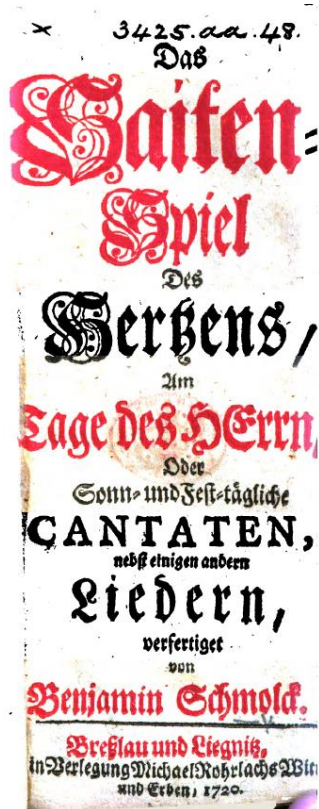 × 3425.aa.48.
Das
Saiten-
Spiel
Des
Hertzens,
Am
Tage des HErrn,
Oder
Sonn- und Fest-tägliche
CANTATEN,
nebst einigen andern
Liedern,
verfertiget
von
Benjamin Schmolck.
Breßlau und Liegnitz,
in Verlegung Michael Rohrlachs Wit
und Erben, 1720.